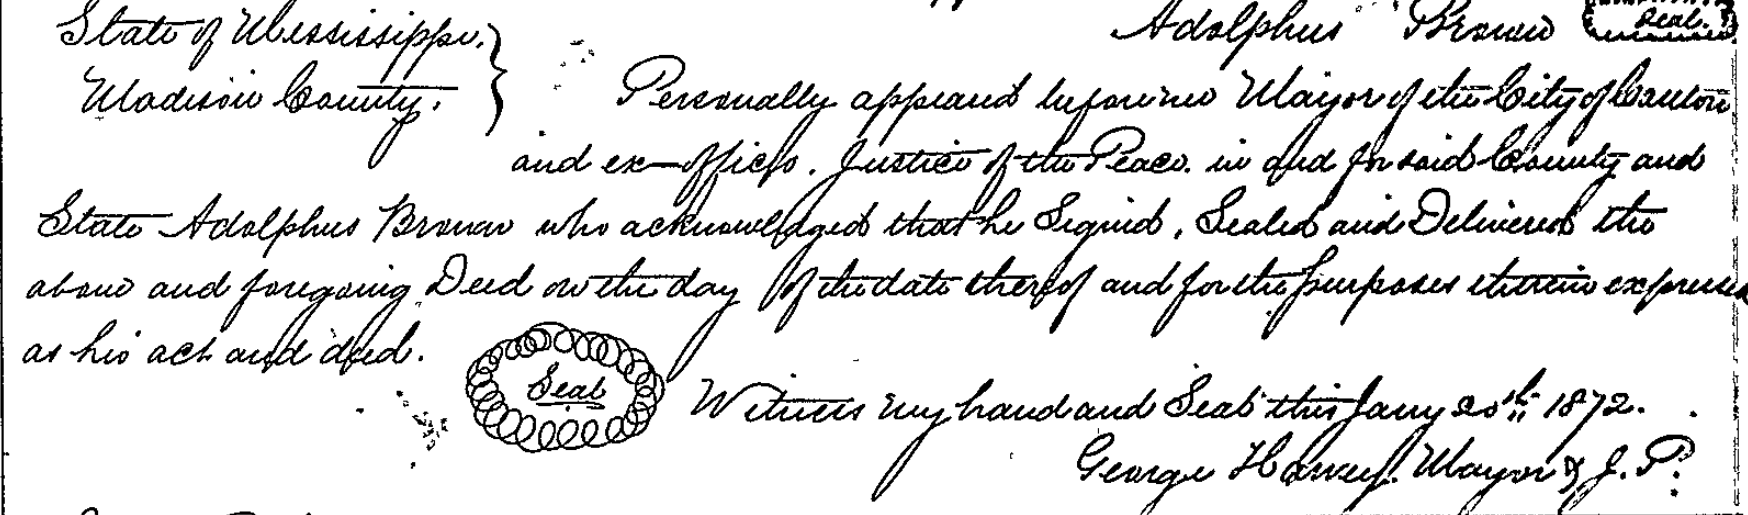 Adolphus Brown Seal.
State of Mississippi.
Madison County.
Personally appeared before me Mayor of the City of Canton
and ex-officio. Justice of the Peace. in and for said County and
State Adolphus Brown who acknowledged that he Signed, Sealed and Delivered the
above and foregoing Deed on the day of the date thereof and for the purposes therein expressed
as his act and deed.
Seal
Witness my hand and Seal this Jany 20th 1872.
George Harvey. Mayor & J.P.